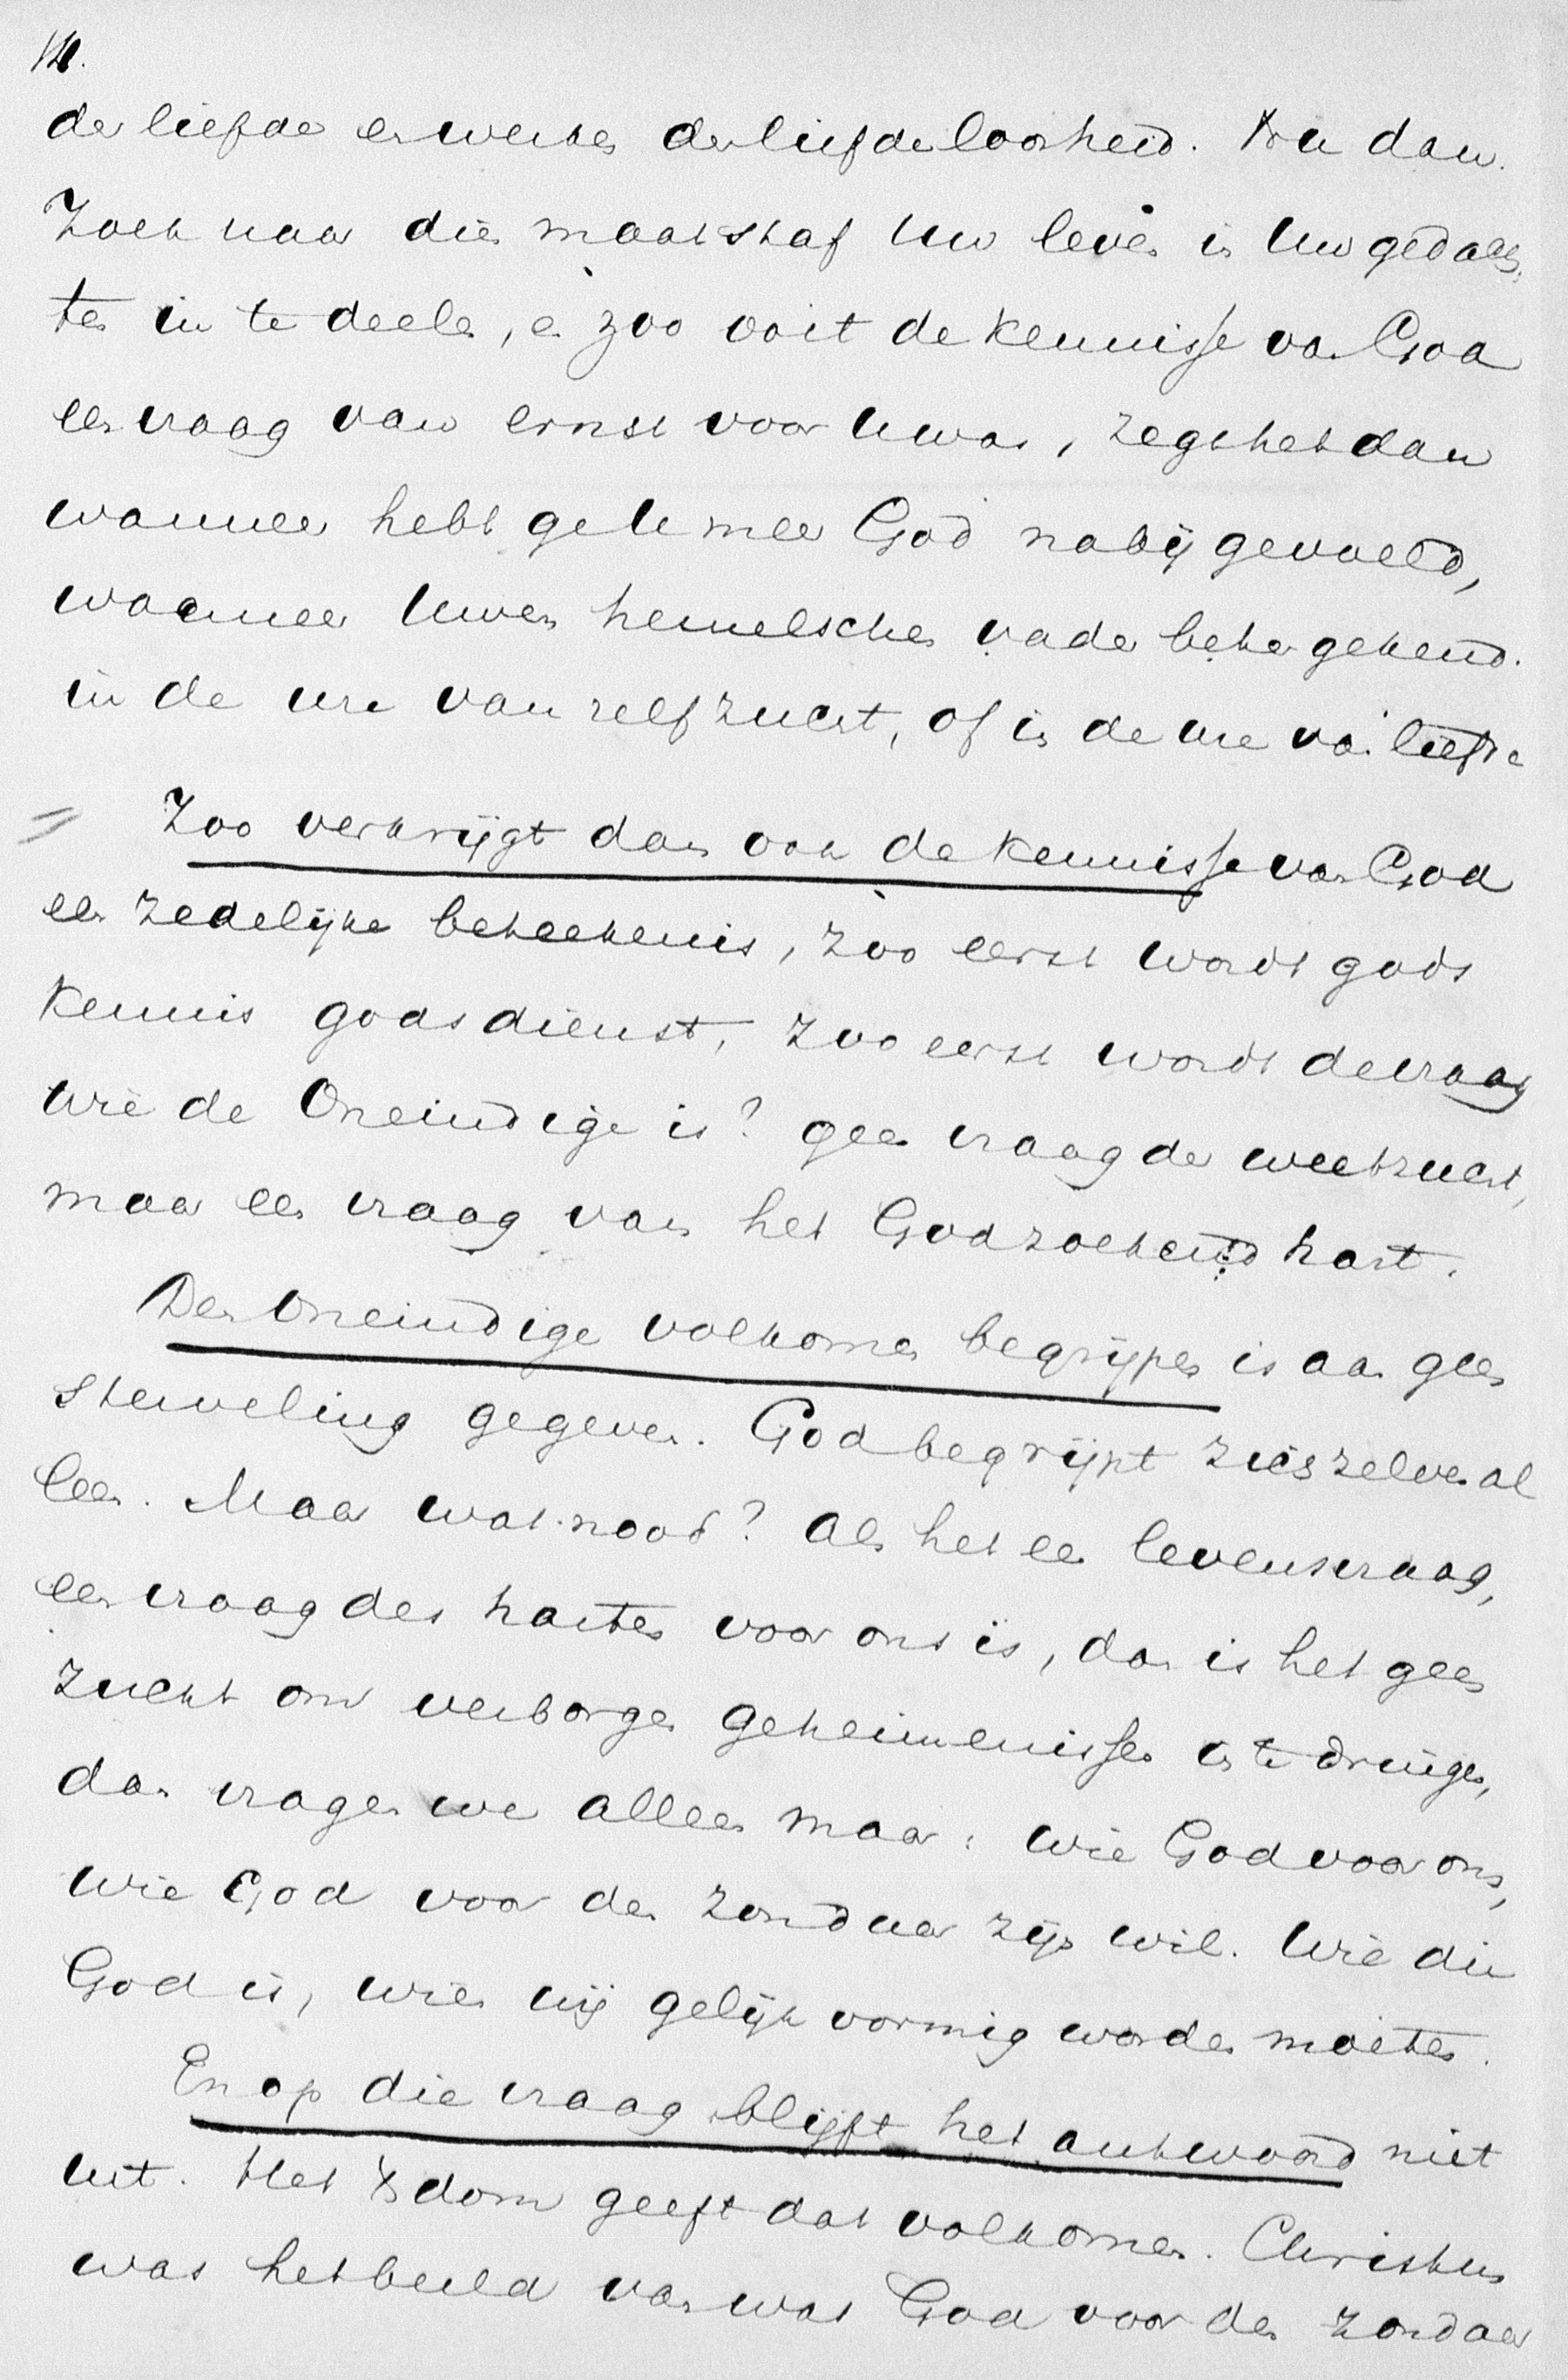 14.
der liefde en werken der liefdeloosheid. Nu dan.
Zoek naar dien maatstaf Uw leven in Uw gedach
ten in te deelen, en zoo ooit de kennisse van God
een vraag van ernst voor U was, zegt het dan
wanneer hebt ge U meer God nabij gevoeld,
wanneer Uwen hemelschen vader beter gekend.
in de ure van zelfzucht, of in de ure van liefde
Zoo verkrijgt dan ook de kennisse van God
een zedelijke beteekenis, zoo eerst wordt gods
kennis godsdienst, zoo eerst wordt de vraag
wie de Oneindige is? geen vraag der weetzucht,
maar een vraag van het Godzoekend hart.
Den Oneindige volkomen begrijpen is aan geen
sterveling gegeven. God begrijpt zich zelven al
leen. Maar wat nood? Als het een levensvraag,
een vraag des harten voor ons is, dan is het geen
zucht om verborgen geheimenissen in te dringen,
dan vragen we alleen maar: wie God voor ons,
wie God voor den zondaar zijn wil. Wie die
God is, wien wij gelijkvormig worden moeten.
En op die vraag blijft het antwoord niet
uit. Het Xdom geeft dat volkomen. Christus
was het beeld van wat God voor den zondaar